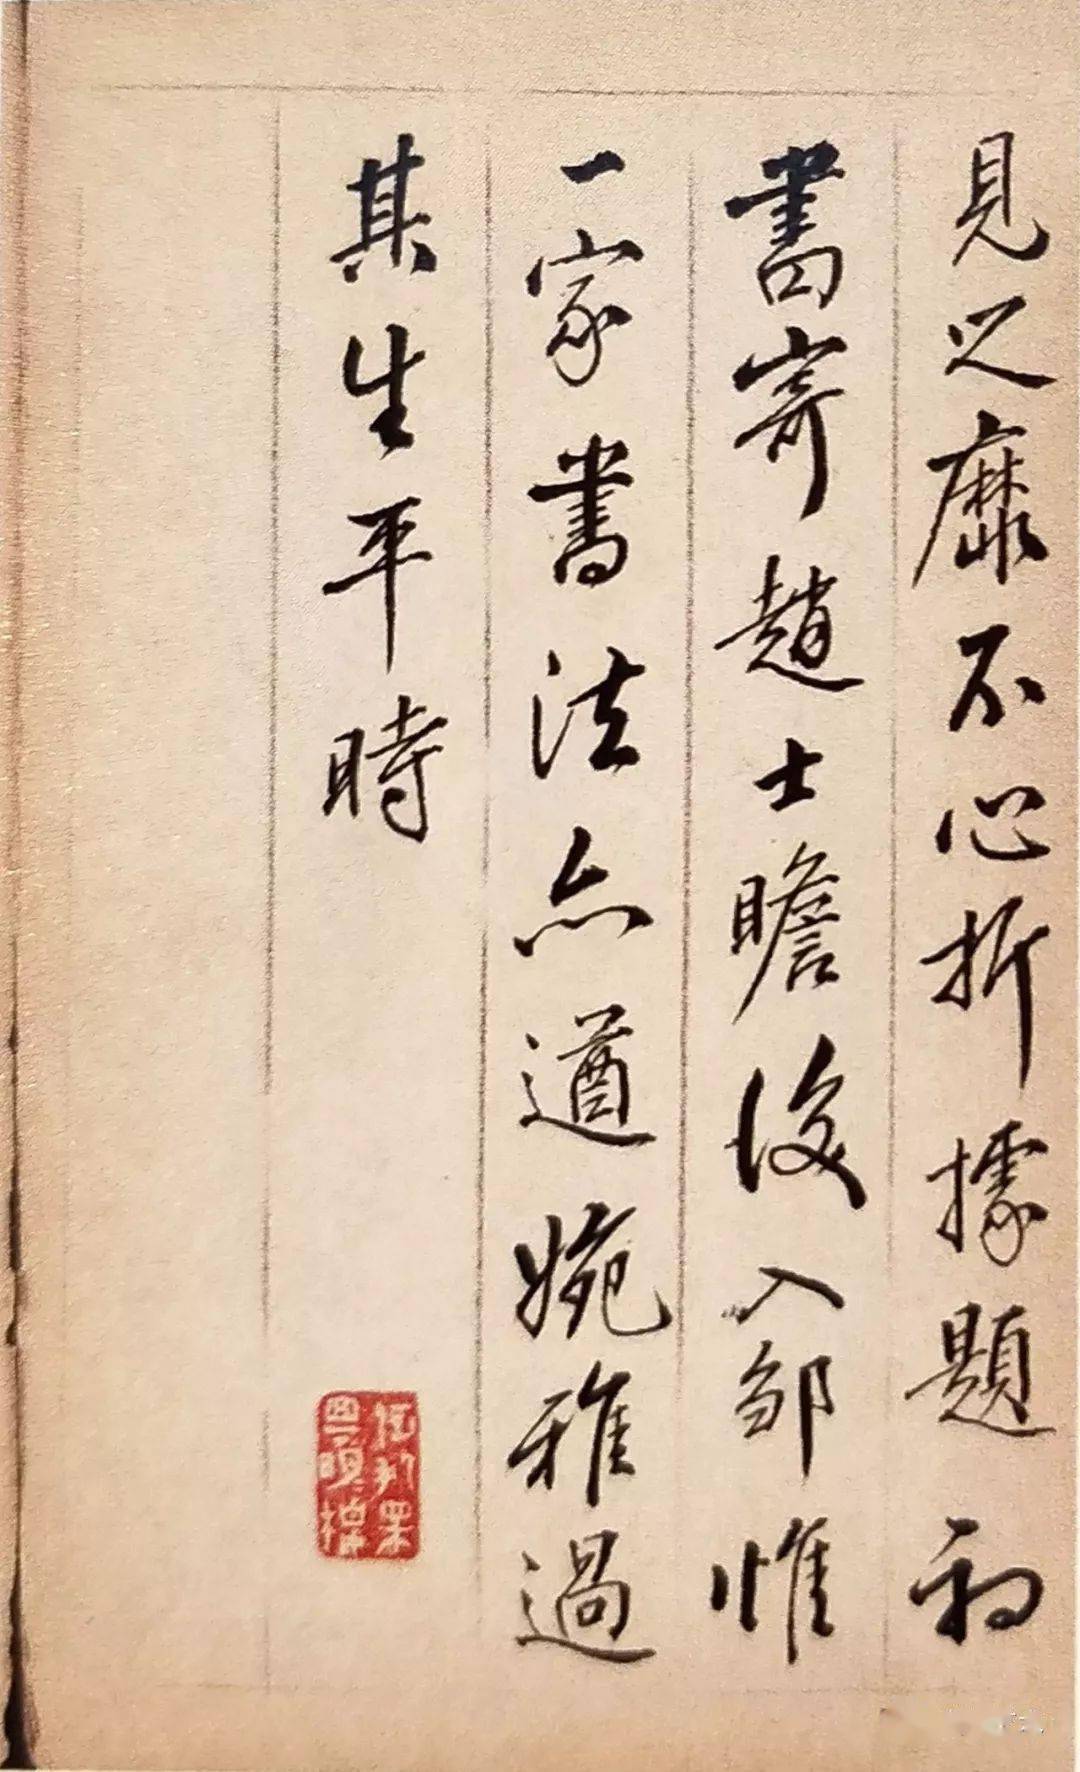 見之靡不心折據題初
畫寄趙士瞻後入鄒惟
一家書法亦遒婉雅過
其生平時